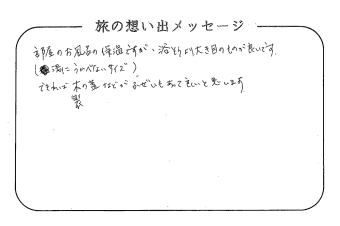 旅の想い出メッセージ
部屋のお風呂の保温ですが、浴そうより大き目のものが良いです。
(湯にうかべないサイズ)
できれば木の蓋などがふぜいもあって良いと思います
製